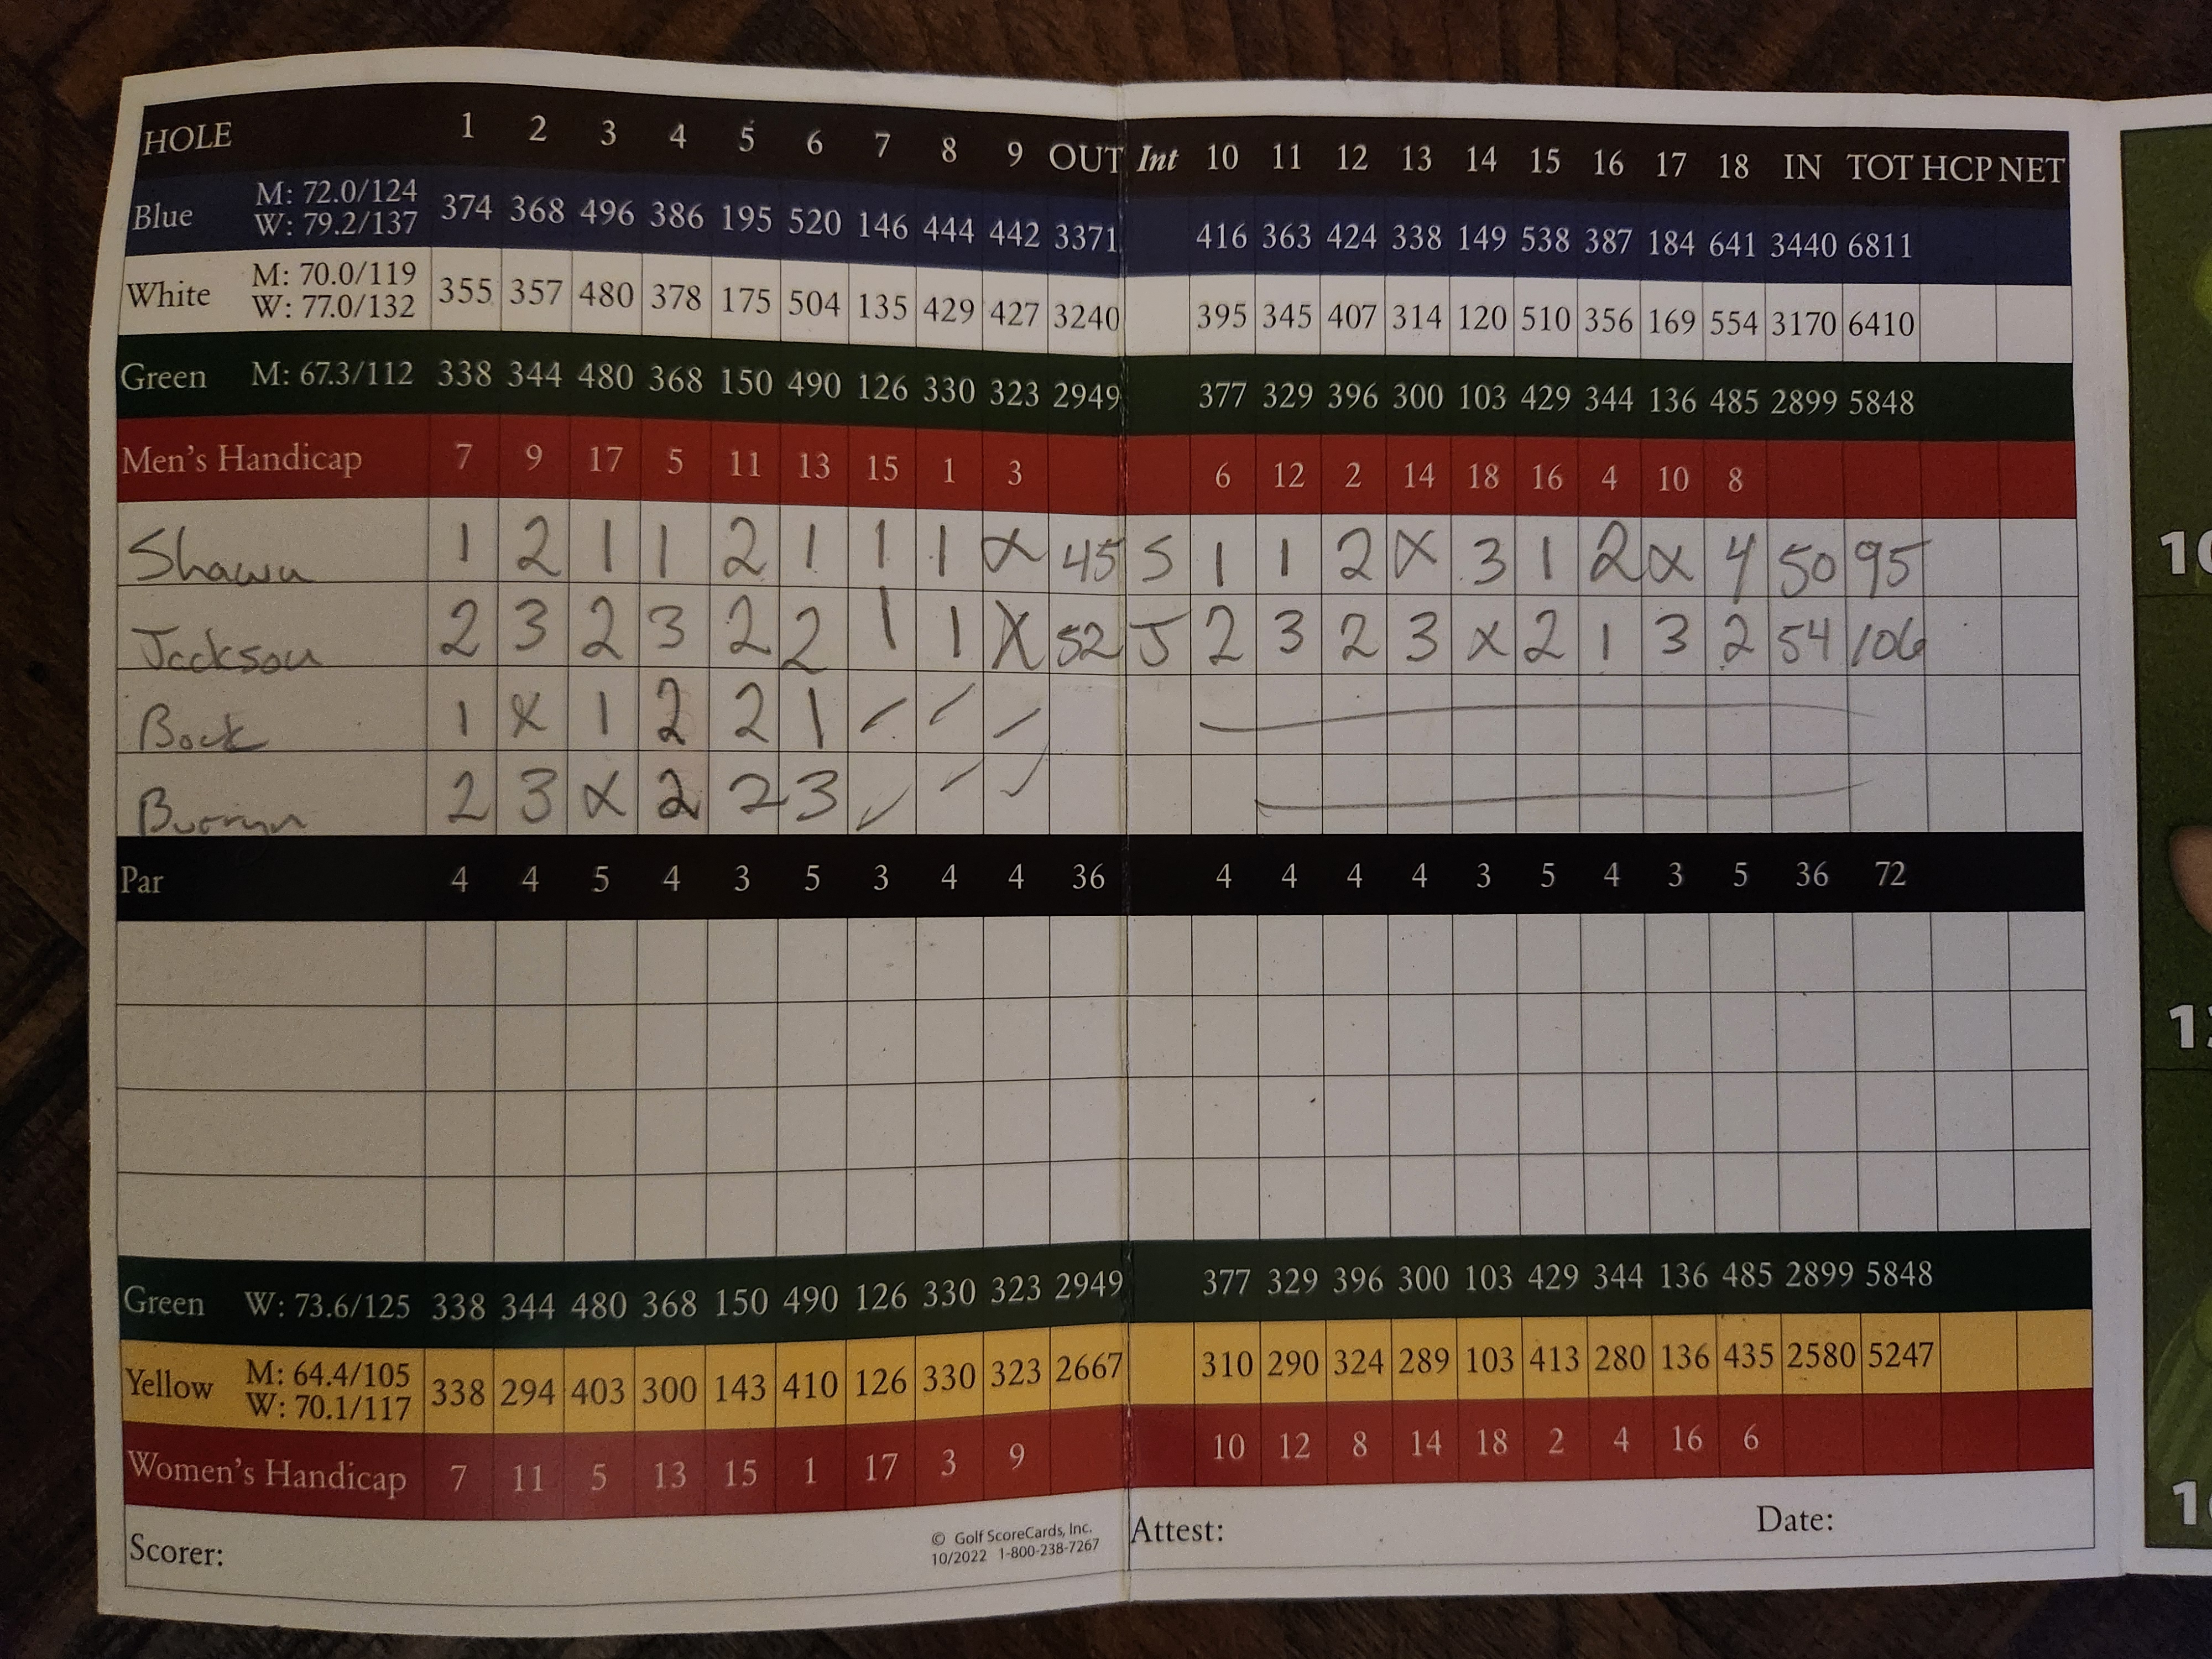 HOLE 1 2 3 4 5 6 7 8 9 OUT Int 10 11 12 13 14 15 16 17 18 IN TOT HCP NET
Blue M: 72.0/124 W: 79.2/137 374 368 496 386 195 520 146 444 442 3371 416 363 424 338 149 538 387 184 641 3440 6811
White M: 70.0/119 W: 77.0/132 355 357 480 378 175 504 135 429 427 3240 395 345 407 314 120 510 356 169 554 3170 6410
Green M: 67.3/112 338 344 480 368 150 490 126 330 323 2949 377 329 396 300 103 429 344 136 485 2899 5848
Men's Handicap 7 9 17 5 11 13 15 1 3 6 12 2 14 18 16 4 10 8
Shawn 1 2 1 1 2 1 1 1 X 45 S 1 1 2 X 3 1 2 X 4 50 95
Jackson 2 3 2 3 2 2 1 1 X 52 J 2 3 2 3 X 2 1 3 2 54 106
1 X 1 2 2 1
2 3 X 2 2 3
Par 4 4 5 4 3 5 3 4 4 36 4 4 4 4 3 5 4 3 5 36 72
Green W: 73.6/125 338 344 480 368 150 490 126 330 323 2949 377 329 396 300 103 429 344 136 485 2899 5848
Yellow M: 64.4/105 W: 70.1/117 338 294 403 300 143 410 126 330 323 2667 310 290 324 289 103 413 280 136 435 2580 5247
Women's Handicap 7 11 5 13 15 1 17 3 9 10 12 8 14 18 2 4 16 6
Scorer: © Golf ScoreCards, Inc. Attest: Date:
10/2022 1-800-238-7267